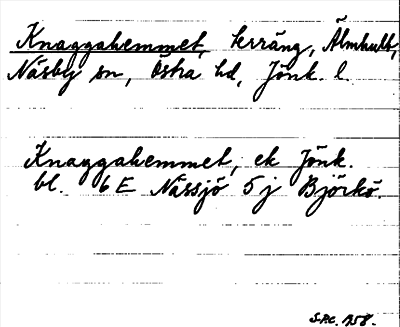 Knaggahemmet, terräng, Älmhult,
Näsby sn, Östra hd, Jönk. l.
Knaggahemmet, ek Jönk.
bl. 6 E Nässjö 5 j Björkö.
S.P.C. 1958.